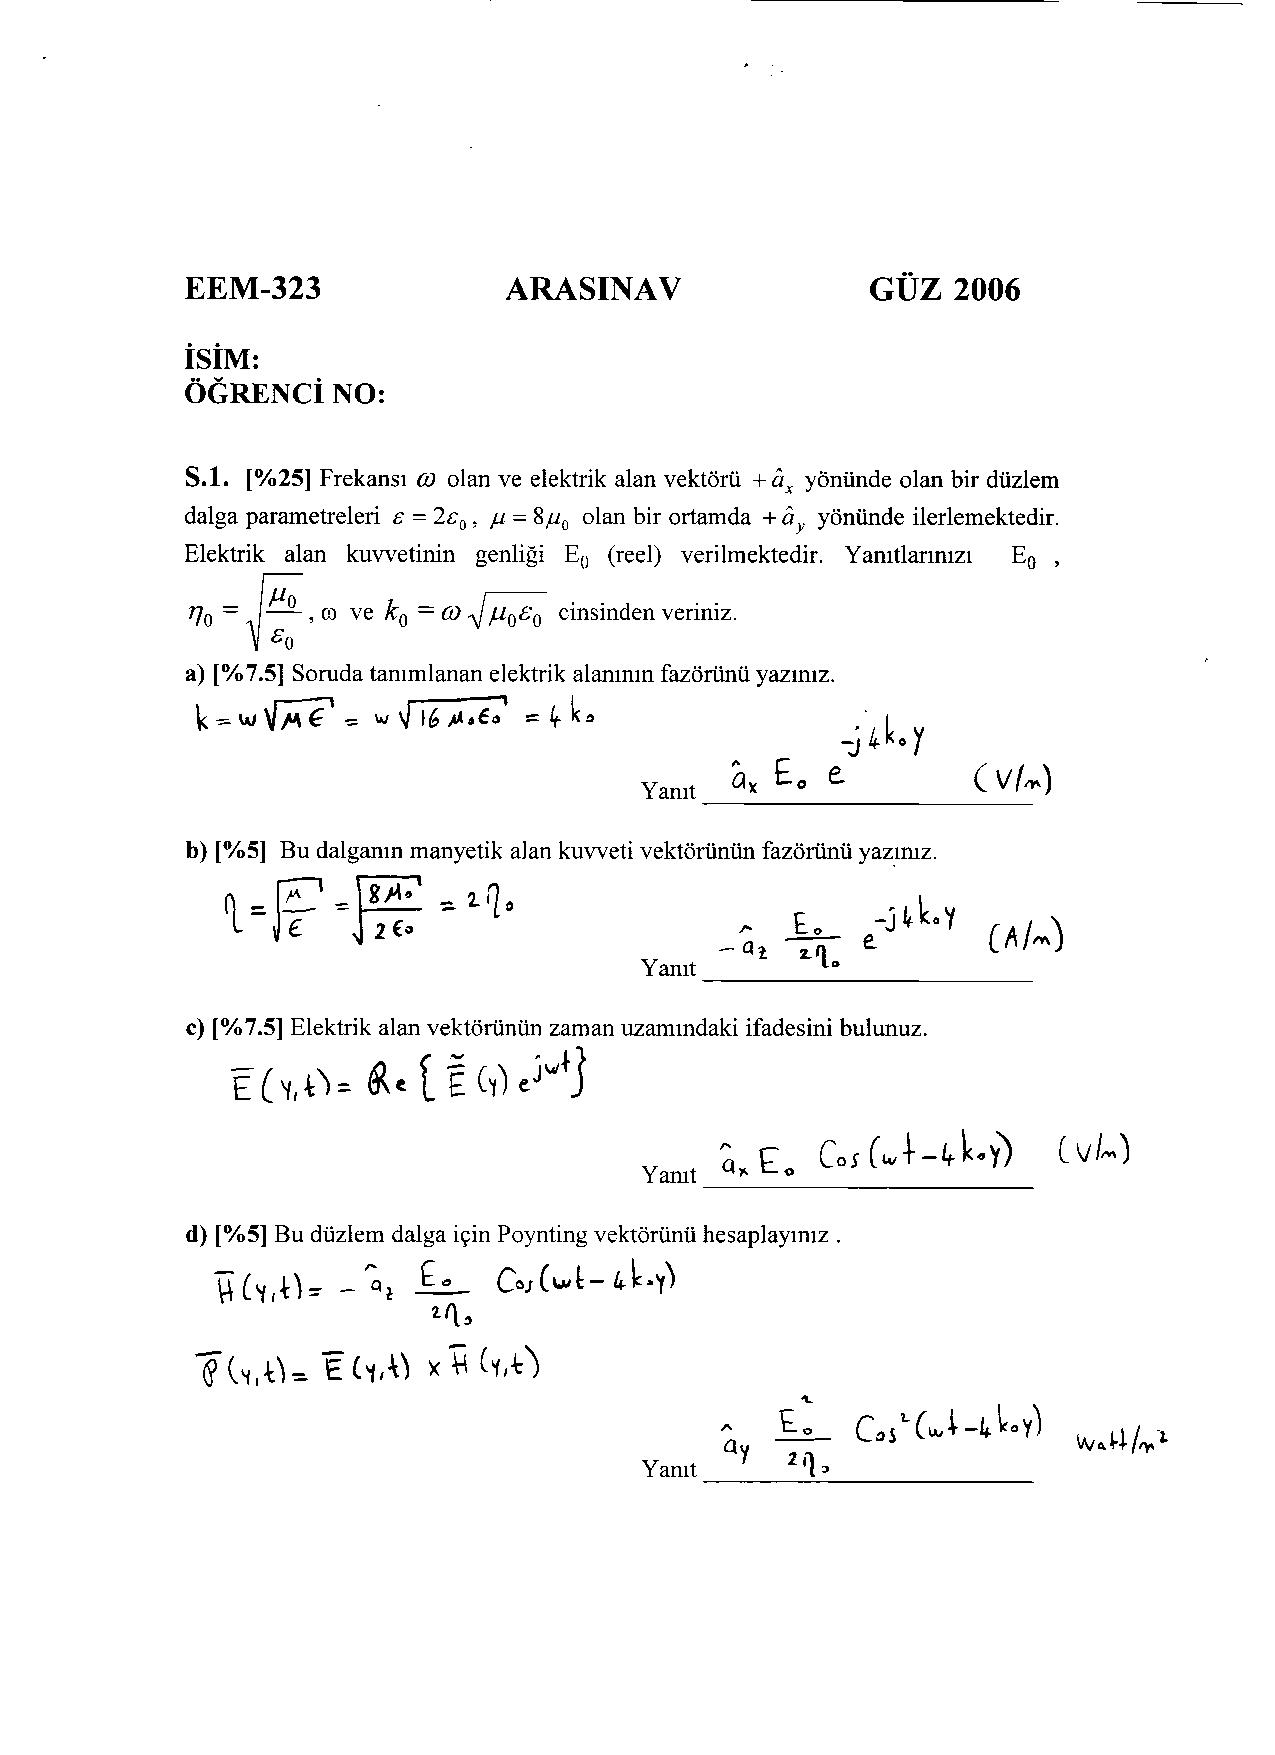 EEM-323 ARASINAV GÜZ 2006
İSİM:
ÖĞRENCİ NO:
S.1. [%25] Frekansı ω olan ve elektrik alan vektörü +â_x yönünde olan bir düzlem
dalga parametreleri ε = 2ε₀, μ = 8μ₀ olan bir ortamda +â_y yönünde ilerlemektedir.
Elektrik alan kuvvetinin genliği E₀ (reel) verilmektedir. Yanıtlarınızı E₀ ,
η₀ = √(μ₀/ε₀) , ω ve k₀ = ω√(μ₀ε₀) cinsinden veriniz.
a) [%7.5] Soruda tanımlanan elektrik alanının fazörünü yazınız.
k = w√(με) = w√(16 μ₀ε₀) = 4k₀
Yanıt â_x E₀ e^(-j4k₀y) (V/m)
b) [%5] Bu dalganın manyetik alan kuvveti vektörünün fazörünü yazınız.
η = √(μ/ε) = √(8μ₀/2ε₀) = 2η₀
Yanıt -â_z E₀/2η₀ e^(-j4k₀y) (A/m)
c) [%7.5] Elektrik alan vektörünün zaman uzamındaki ifadesini bulunuz.
E̅(y,t) = Re{E̅̃(y) e^(jwt)}
Yanıt â_x E₀ Cos(wt-4k₀y) (V/m)
d) [%5] Bu düzlem dalga için Poynting vektörünü hesaplayınız .
H̅(y,t) = -â_z E₀/2η₀ Cos(wt-4k₀y)
P̅(y,t) = E̅(y,t) x H̅(y,t)
Yanıt â_y E₀²/2η₀ Cos²(wt-4k₀y) Watt/m²